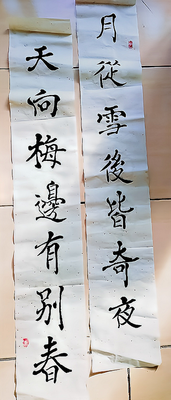 月從雪後皆奇夜
天向梅邊有別春